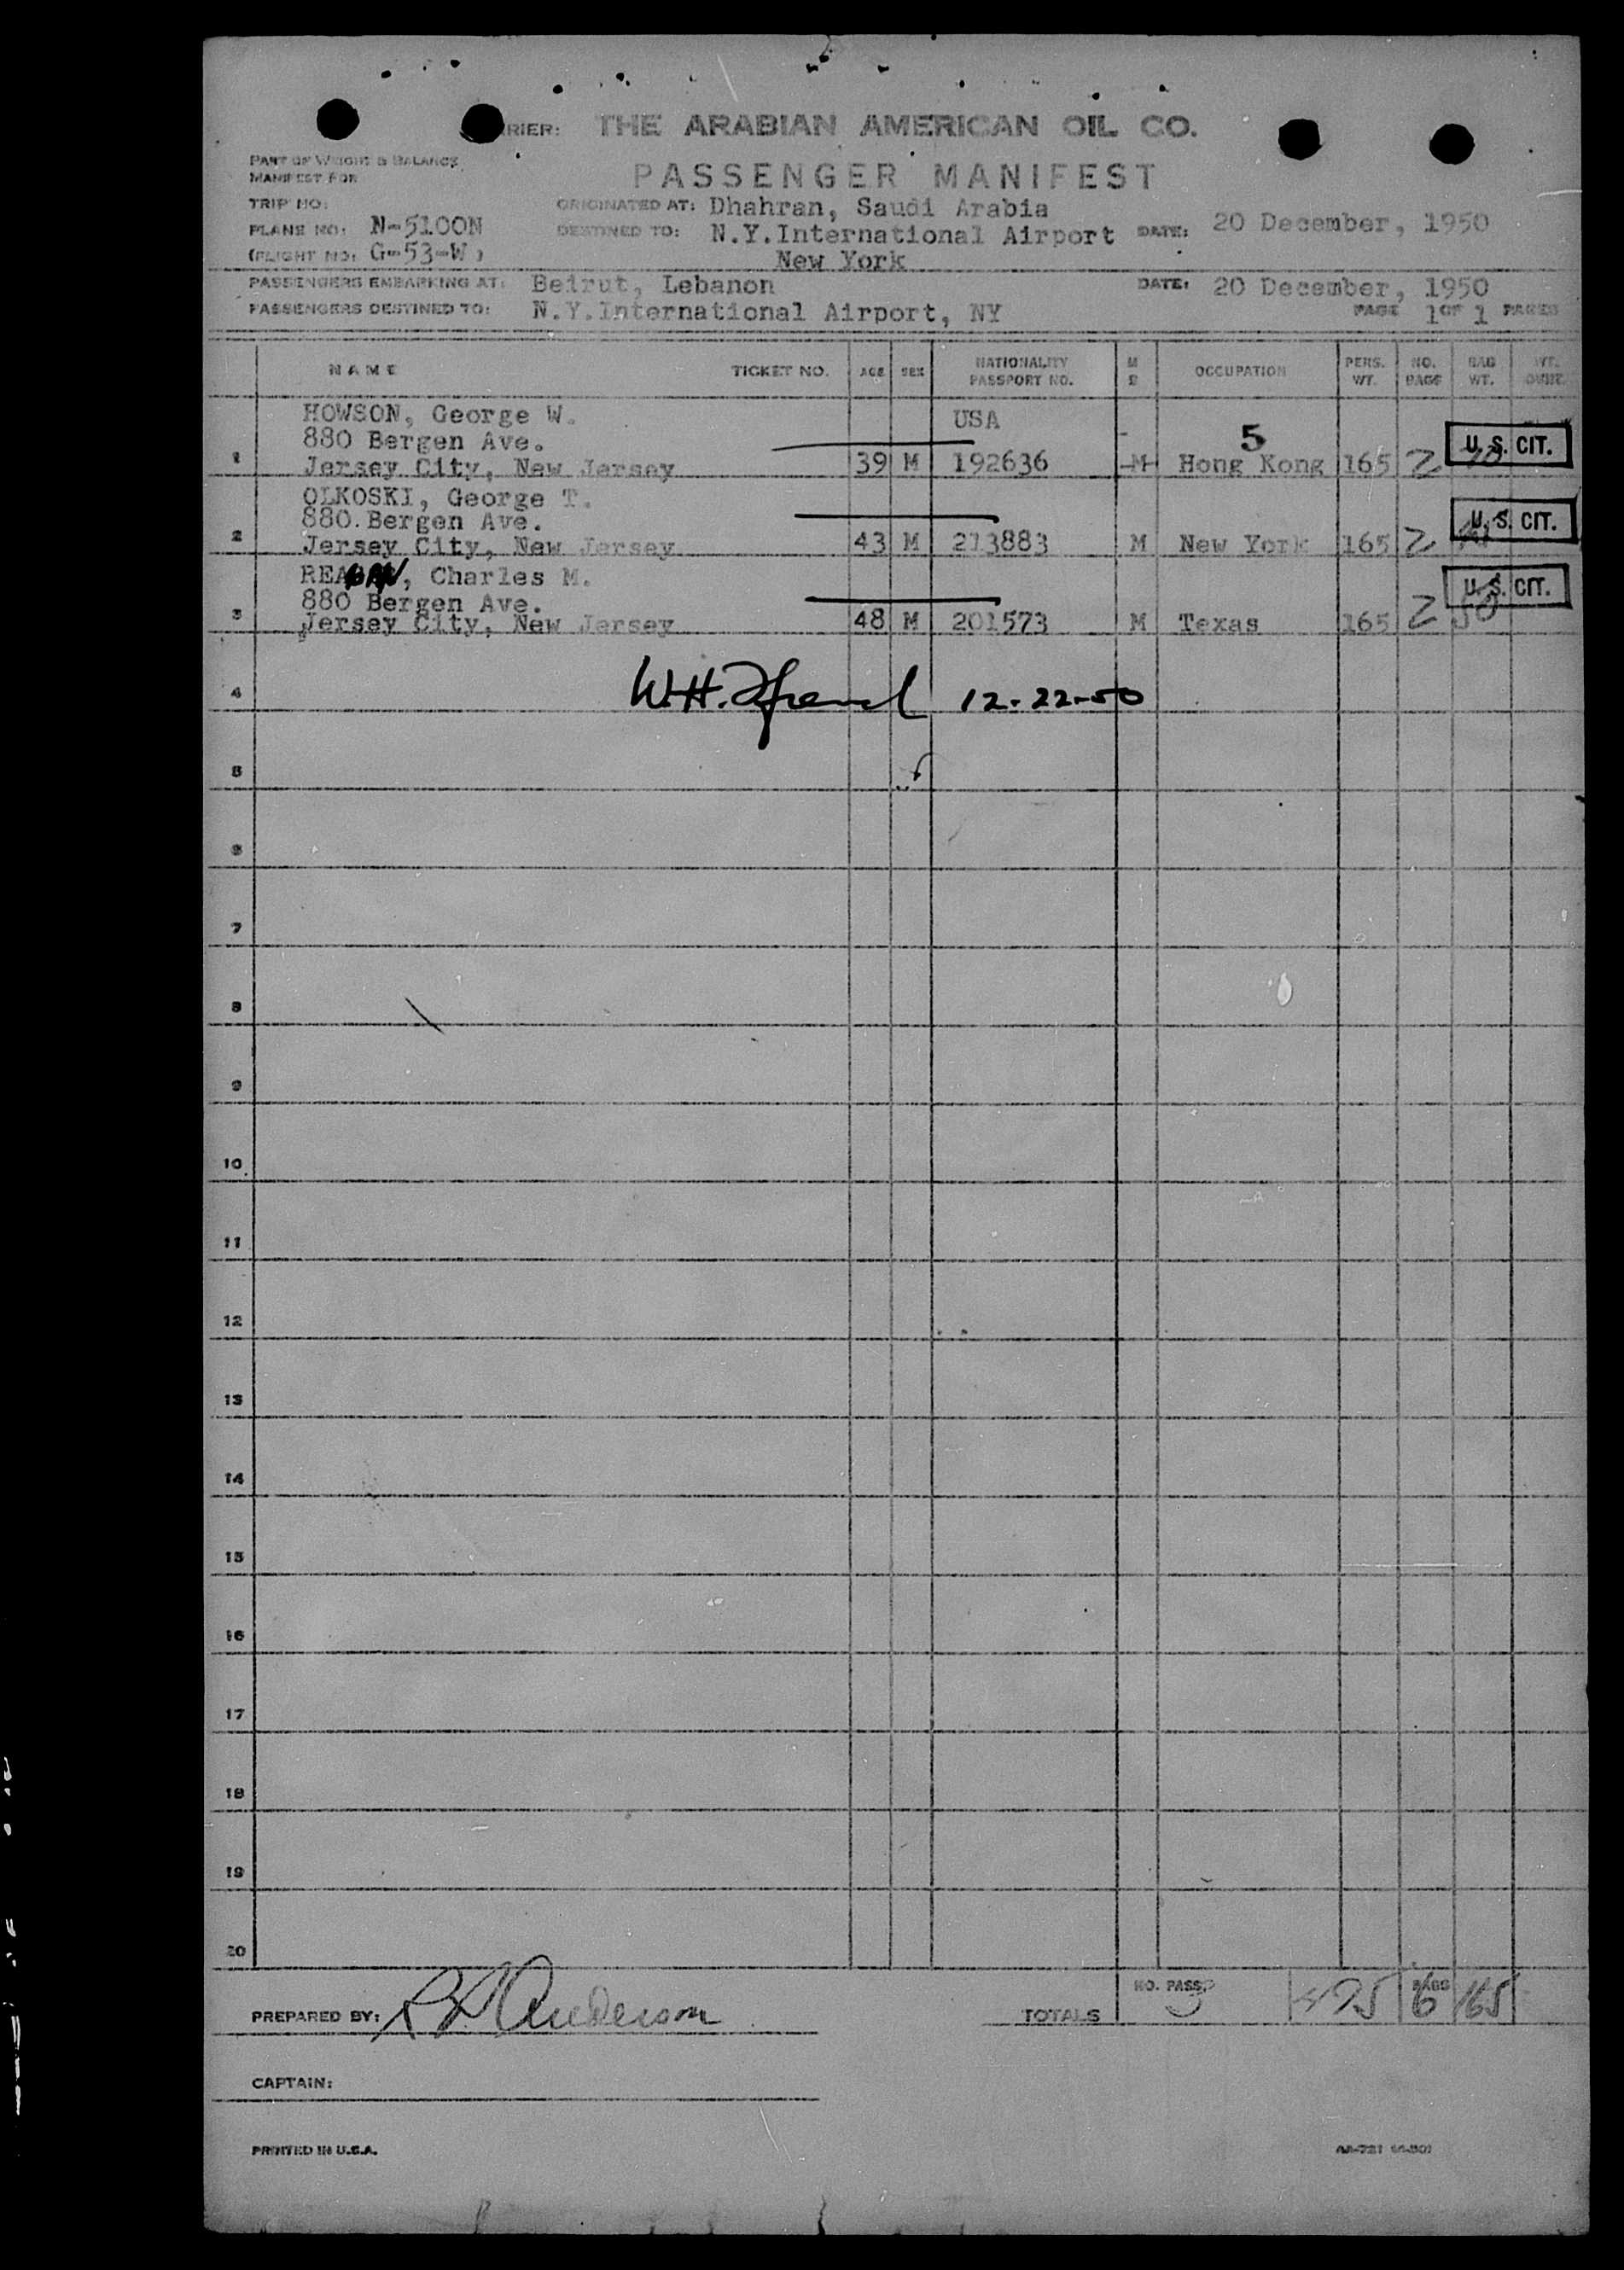 RIER: THE ARABIAN AMERICAN OIL CO.
PART OF WEIGHT & BALANCE
MANIFEST FOR
PASSENGER MANIFEST
TRIP NO:
ORIGINATED AT: Dhahran, Saudi Arabia
PLANE NO: N-5100N
DESTINED TO: N.Y.International Airport DATE: 20 December, 1950
(FLIGHT NO: G-53-W)
New York
PASSENGERS EMBARKING AT: Beirut, Lebanon DATE: 20 December, 1950
PASSENGERS DESTINED TO: N.Y.International Airport, NY PAGE 1 OF 1 PAGES
NAME TICKET NO. AGE SEX NATIONALITY PASSPORT NO. M S OCCUPATION PERS. WT. NO. BAGS BAG WT. WT. OVER
HOWSON, George W. USA
880 Bergen Ave. 5 U.S. CIT.
1 Jersey City, New Jersey 39 M 192636 M Hong Kong 165 2
OLKOSKI, George T.
880 Bergen Ave. U.S. CIT.
2 Jersey City, New Jersey 43 M 213883 M New York 165 2
REA, Charles M.
880 Bergen Ave. U.S. CIT.
3 Jersey City, New Jersey 48 M 201573 M Texas 165 2 50
4 W.H. 12-22-50
5
6
7
8
9
10
11
12
13
14
15
16
17
18
19
20
PREPARED BY: Anderson TOTALS NO. PASS. 3 495 BAGS 6 165
CAPTAIN:
PRINTED IN U.S.A.